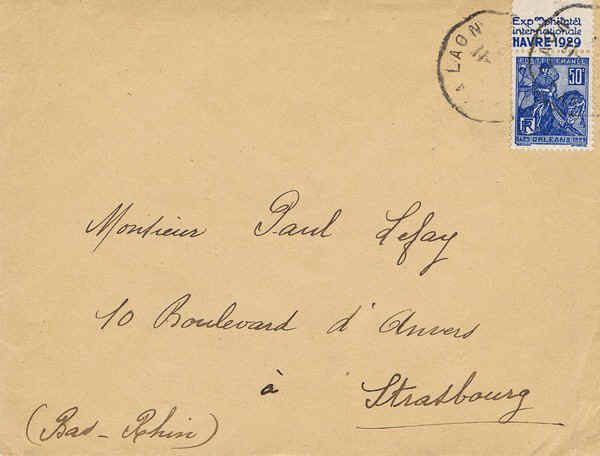 Exp^on philatél
internationale
HAVRE·1929
LAON
POSTES FRANCE
50c
RF
1429 ORLEANS 1929
Monsieur Paul Lefay
10 Boulevard d'Anvers
à
Strasbourg
(Bas-Rhin)